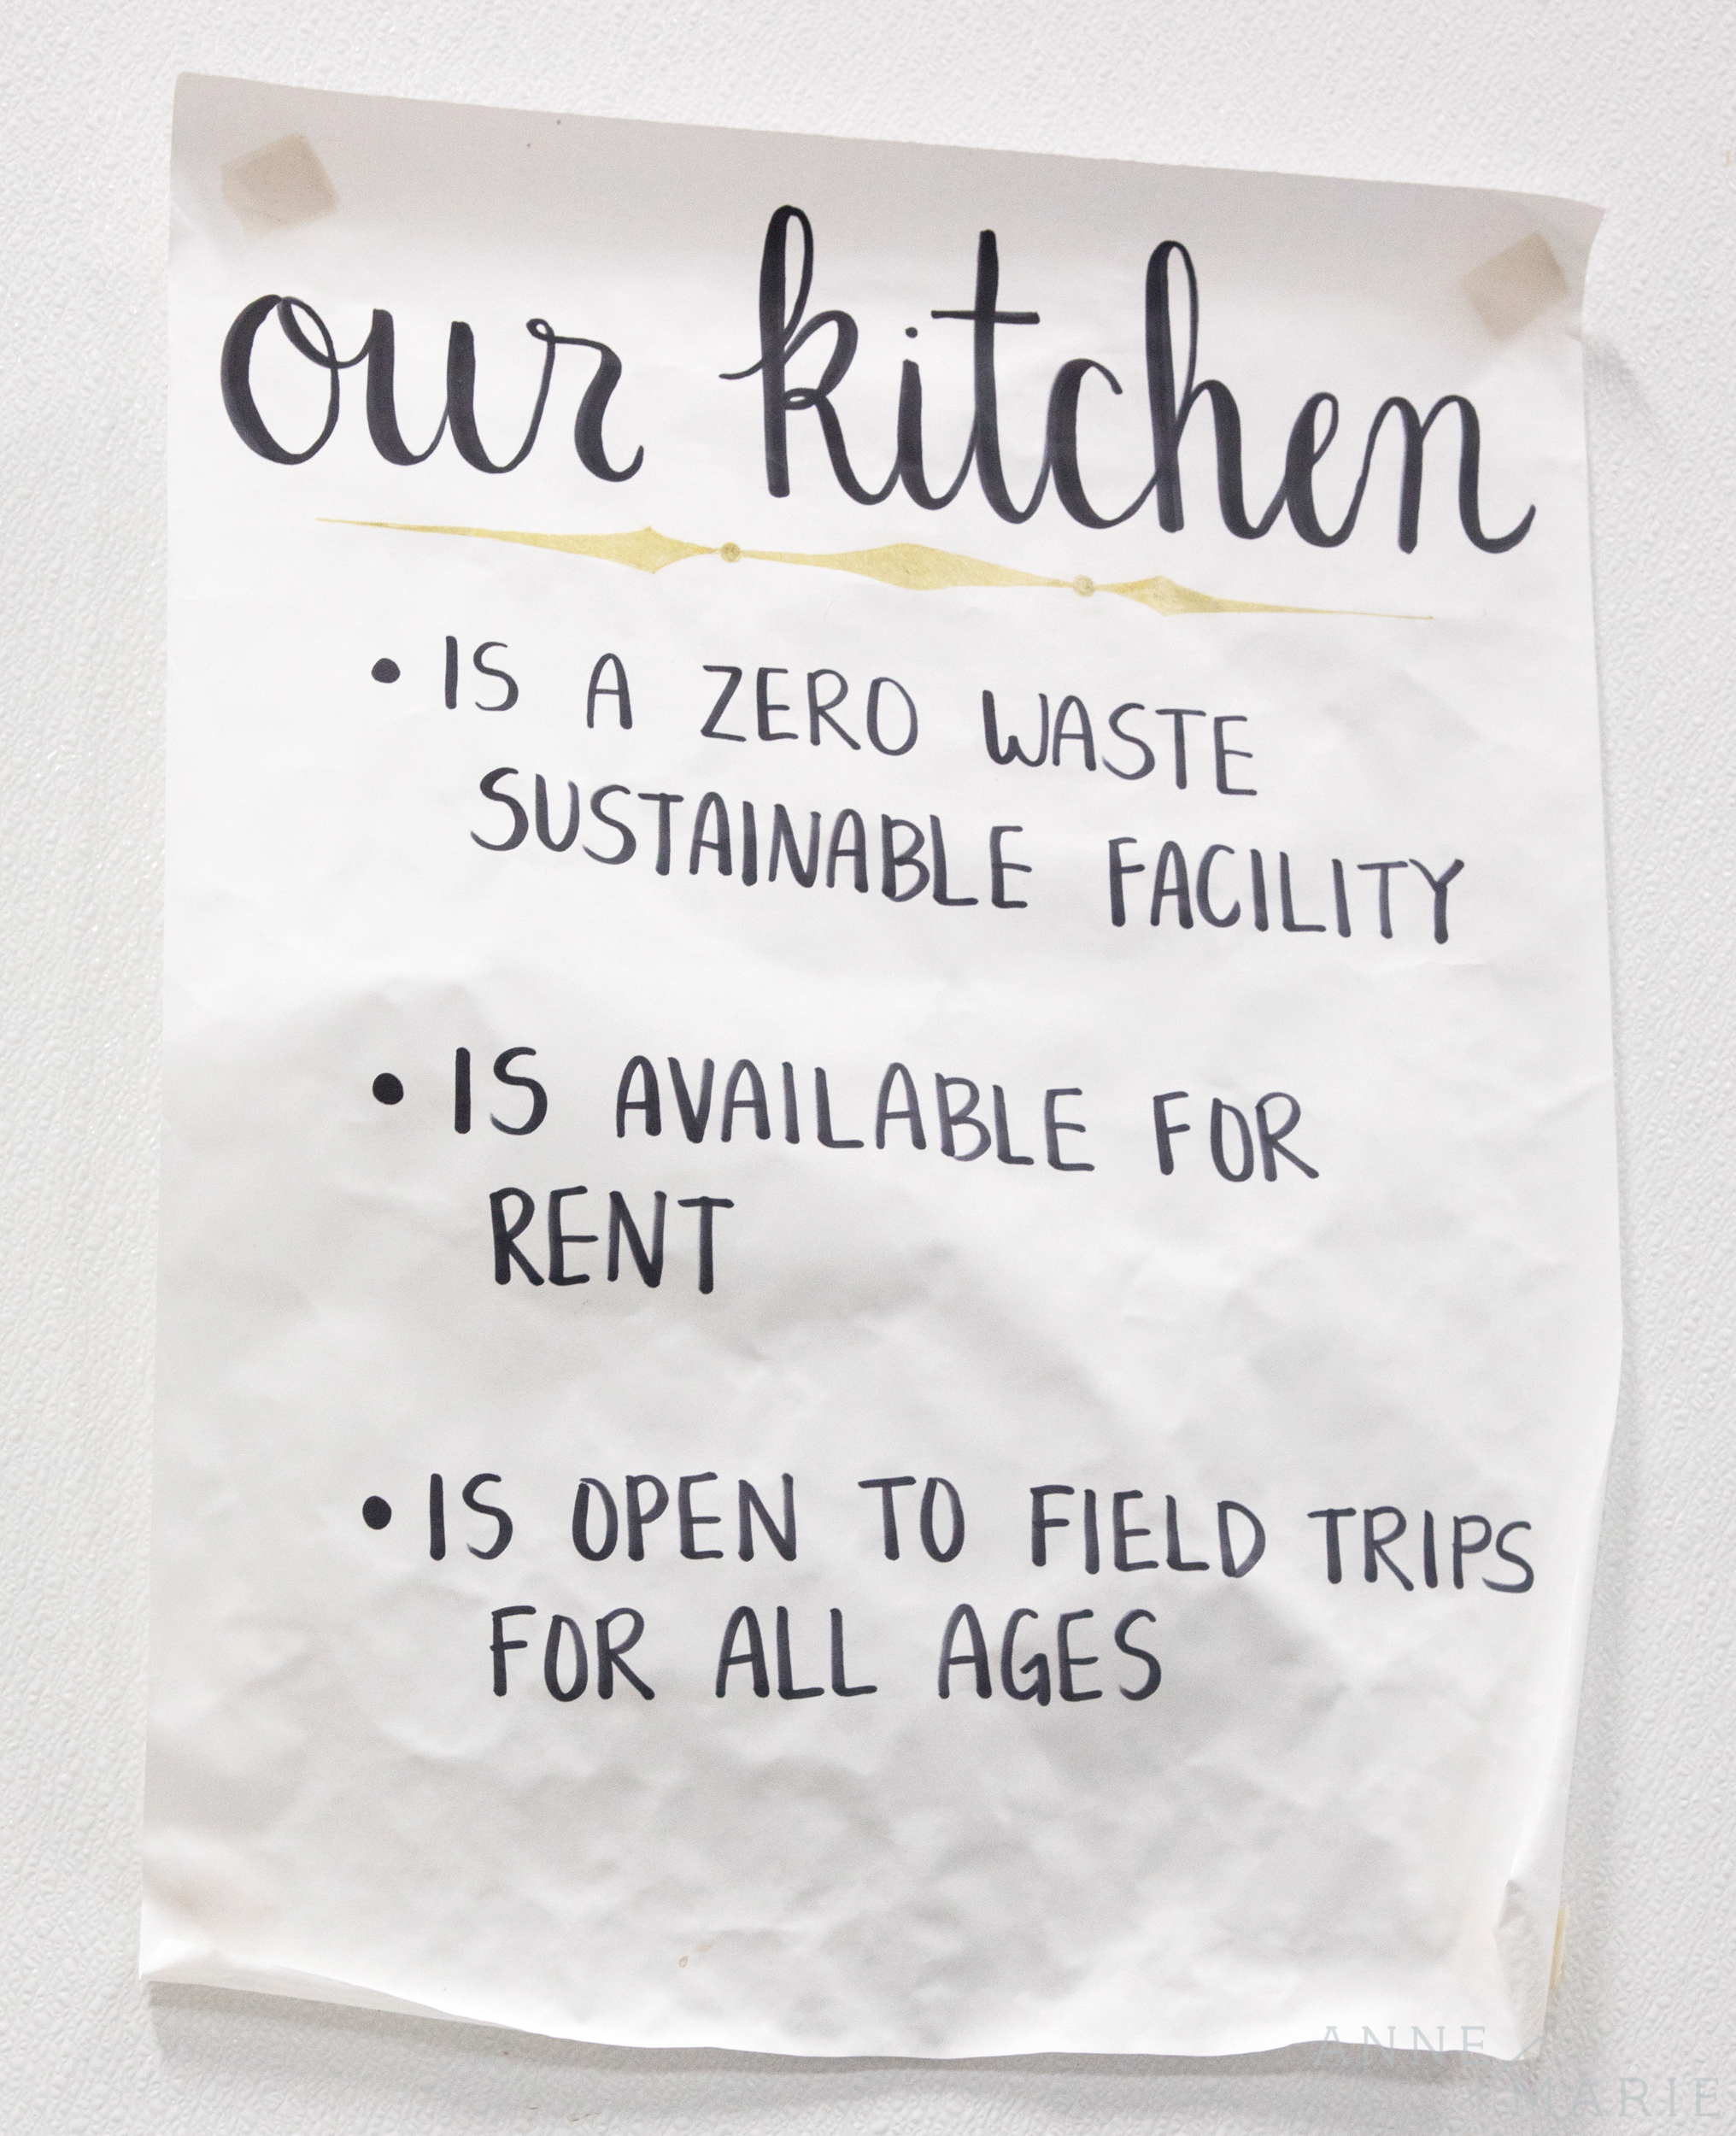 our kitchen
• IS A ZERO WASTE
SUSTAINABLE FACILITY
• IS AVAILABLE FOR
RENT
• IS OPEN TO FIELD TRIPS
FOR ALL AGES
ANNE
MARIE